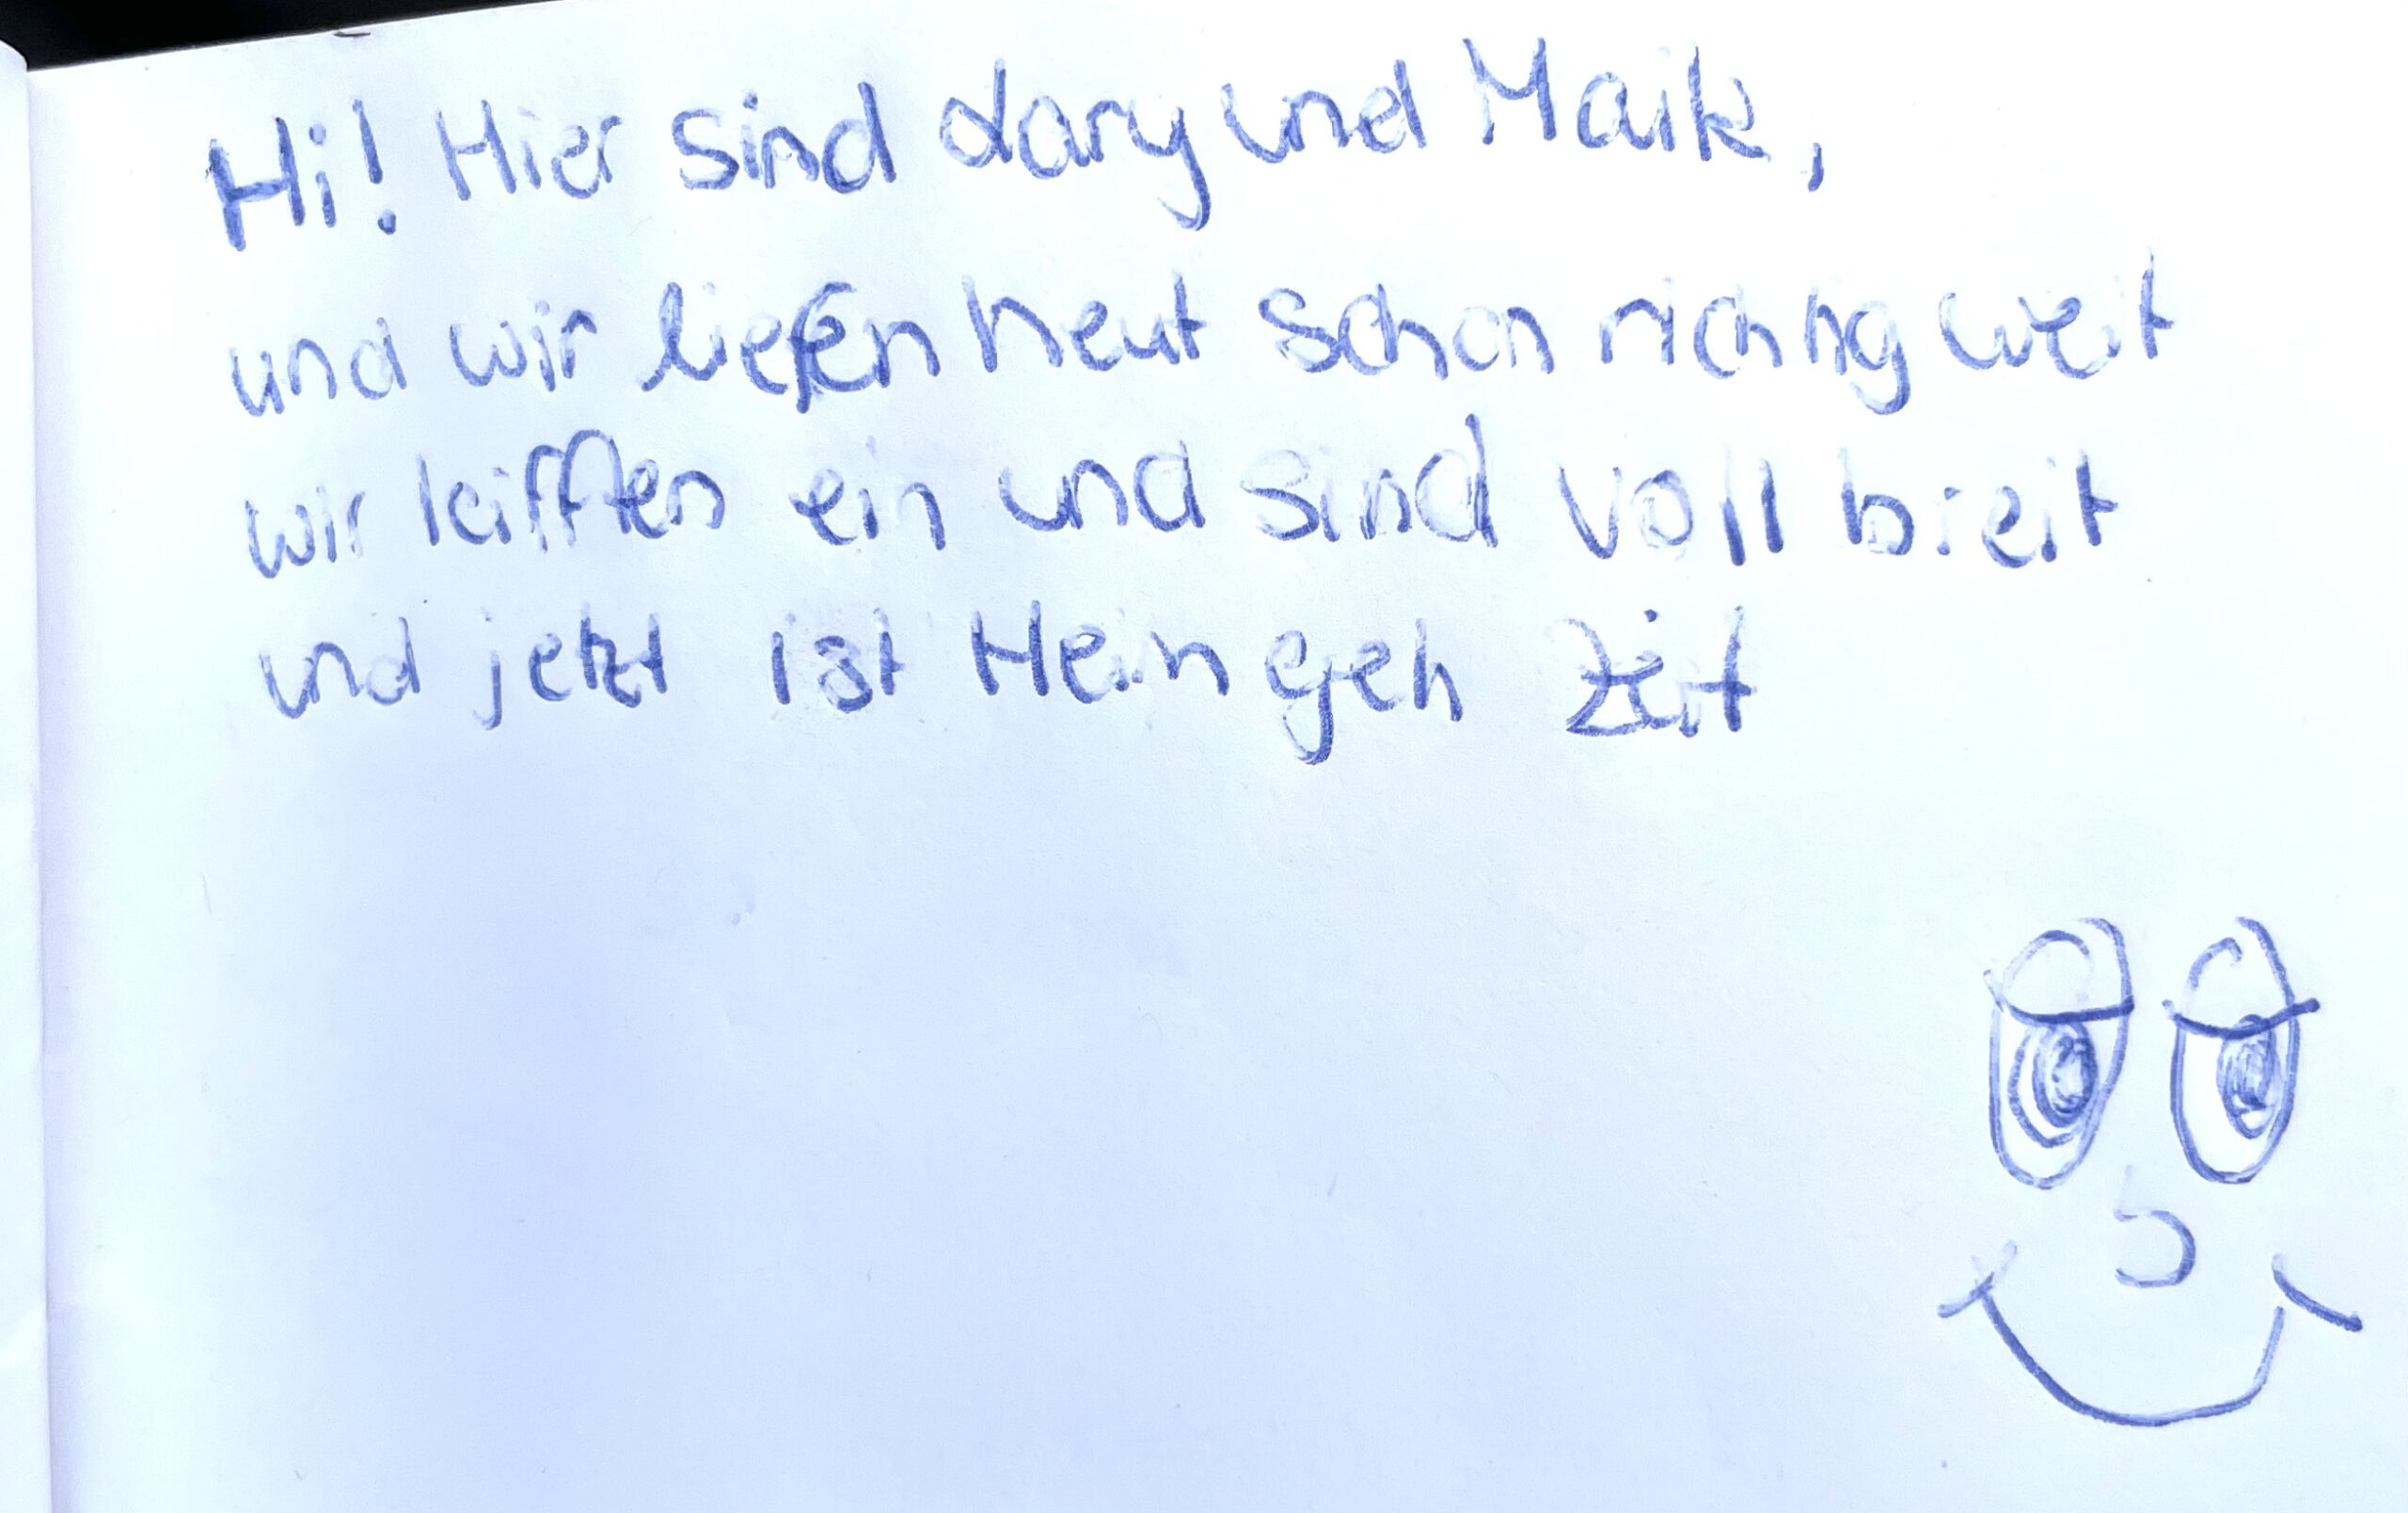 Hi! Hier sind dary und Maik,
und wir liefen heut schon richtig weit
wir kifften ein und sind voll breit
und jetzt ist Heimgeh Zeit